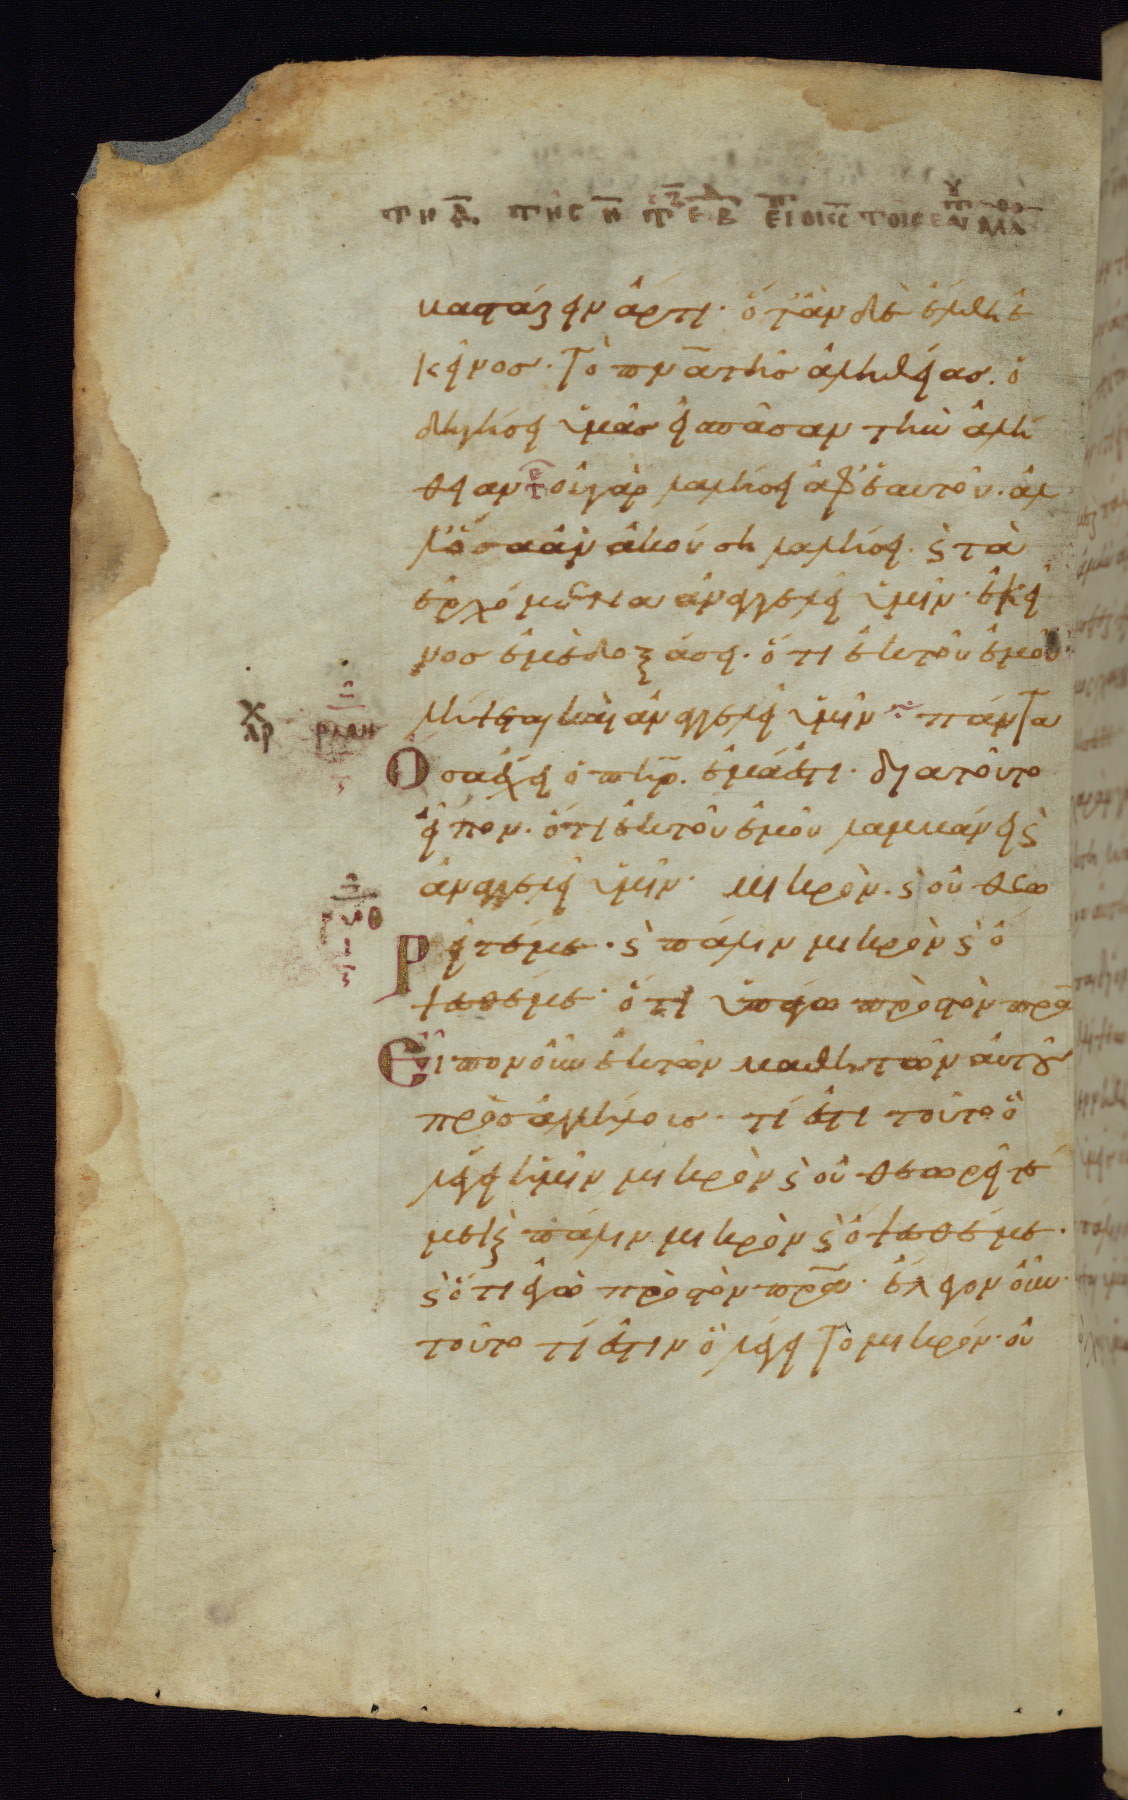 τη δ της ν
βασταζειν ἄρτι· ὅταν δὲ ἔλθη ἐ
κεῖνος· τὸ πνα τῆς ἀληθείας· ὁ
δηγήσει ὑμᾶς εἰς πᾶσαν τὴν ἀλή
θειαν οὐ γὰρ λαλήσει ἀφ' ἑαυτοῦ· ἀλ
λ' ὅσα ἂν ἀκούση λαλήσει· ϛ τὰ
ἐρχόμενα ἀναγγελεῖ ὑμῖν· ἐκεῖ
νος ἐμὲ δοξάσει· ὅτι ἐκ τοῦ ἐμοῦ
λήψεται καὶ ἀναγγελεῖ ὑμῖν πάντα
Ὅσα ἔχει ὁ πηρ· ἐμά ἐστι· διατοῦτο
εἶπον· ὅτι ἐκ τοῦ ἐμοῦ λαμβάνει ϛ
ἀναγγελεῖ ὑμῖν· μικρὸν· ϛ οὐ θεω
ρεῖτέ με· ϛ πάλιν μικρὸν ϛ ὄ
ψεσθέ με· ὅτι ὑπάγω πρὸς τὸν πρα
Εἶπον οὖν ἐκ τῶν μαθητῶν αὐτοῦ
πρὸς ἀλλήλοις· τί ἐστι τοῦτο ὃ
λέγει ἡμῖν μικρὸν ϛ οὐ θεωρεῖτέ
με ϛ πάλιν μικρὸν ϛ ὄψεσθέ με·
ϛ ὅτι ἐγὼ πρὸς τὸν πρα· ἔλεγον οὖν·
τοῦτο τί ἐστιν ὃ λέγει τὸ μικρόν· οὐ